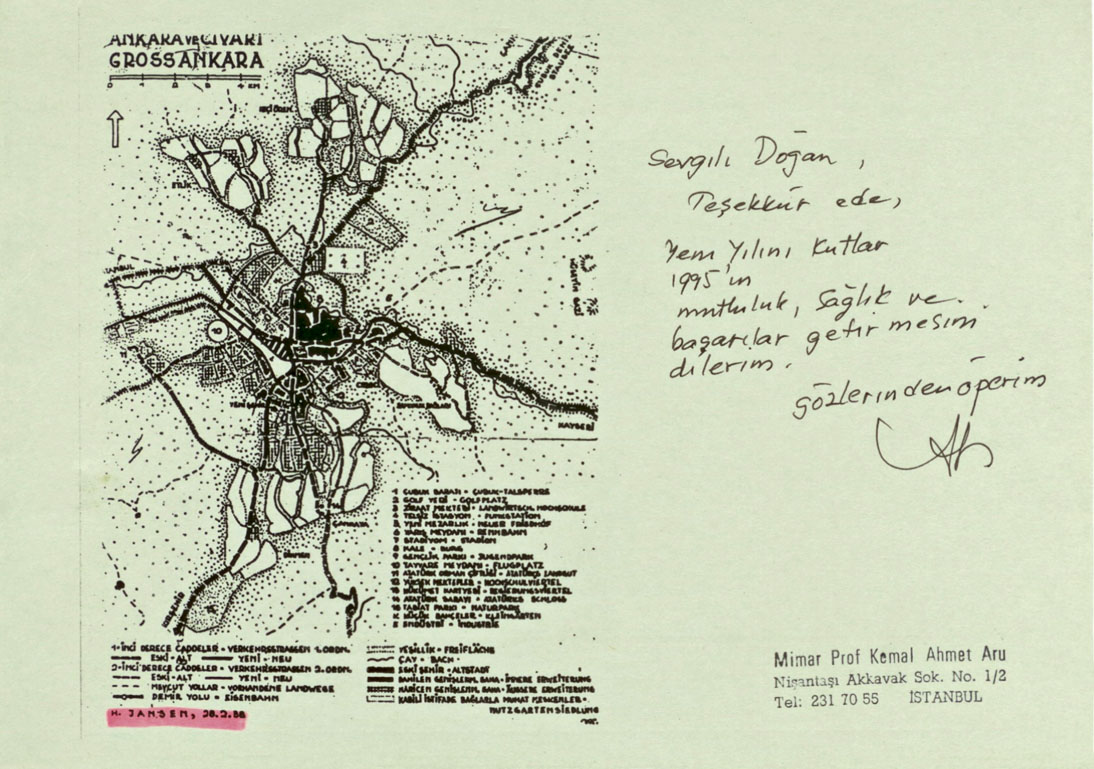 ANKARA VE CİVARI
GROSSANKARA
0 1 2 3 4 KM
KEÇİÖREN
ETLİK
KAYSERİ
ÇANKAYA
DİKMEN
1 ÇUBUK BARAJI - ÇUBUK-TALSPERRE
2 GOLF YERİ - GOLFPLATZ
3 ZİRAAT MEKTEBİ - LANDWIRTSCH. HOCHSCHULE
4 TELSİZ İSTASYON - FUNKSTATION
5 YENİ MEZARLIK - NEUER FRIEDHOF
6 YARIŞ MEYDANI - RENNBAHN
7 STADİYOM - STADION
8 KALE - BURG
9 GENÇLİK PARKI - JUGENDPARK
10 TAYYARE MEYDANI - FLUGPLATZ
11 ATATÜRK ORMAN ÇİFTLİĞİ - ATATÜRKS LANDGUT
12 YÜKSEK MEKTEPLER - HOCHSCHULVIERTEL
13 HÜKÛMET KARTYERİ - REGIERUNGSVIERTEL
14 ATATÜRK SARAYI - ATATÜRKS SCHLOSS
15 TABİAT PARKI - NATURPARK
K KÜÇÜK BAHÇELER - KLEINGÄRTEN
E ENDÜSTRİ - INDUSTRIE
1-İNCİ DERECE CADDELER - VERKEHRSSTRASSEN 1. ORDN.
ESKİ - ALT YENİ - NEU
2-İNCİ DERECE CADDELER - VERKEHRSSTRASSEN 2. ORDN.
ESKİ - ALT YENİ - NEU
MEVCUT YOLLAR - VORHANDENE LANDWEGE
DEMİR YOLU - EISENBAHN
YEŞİLLİK - FREIFLÄCHE
ÇAY - BACH
ESKİ ŞEHİR - ALTSTADT
DAHİLEN GENİŞLEM. SAHA - INNERE ERWEITERUNG
HARİCEN GENİŞLEM. SAHA - ÄUSSERE ERWEITERUNG
NUTZGARTENSIEDLUNG
H. JANSEN,
Sevgili Doğan,
Teşekkür ede,
Yeni Yılını Kutlar
1995 in
mutluluk, Sağlık ve
başarılar getirmesini
dilerim.
gözlerinden öperim
Mimar Prof Kemal Ahmet Aru
Nişantaşı Akkavak Sok. No. 1/2
Tel: 231 70 55 İSTANBUL